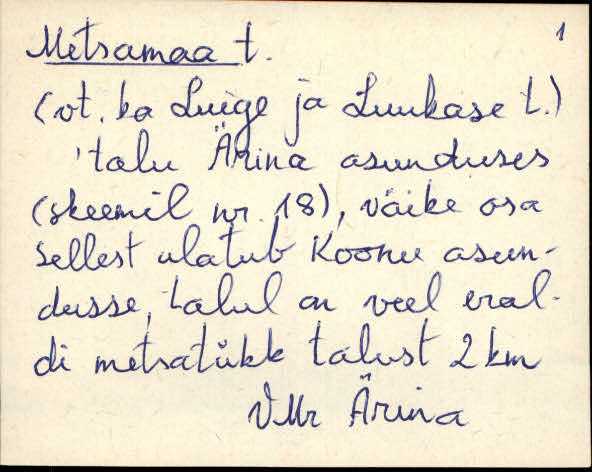 1
Metsamaa t.
(vt. ka Luige ja Luukase t.)
'talu Ärina asunduses
(skeemil nr. 18), väike osa
sellest ulatub Koonu asun-
dusse, talul on veel eral-
di metsatükk talust 2 km
VMr Ärina